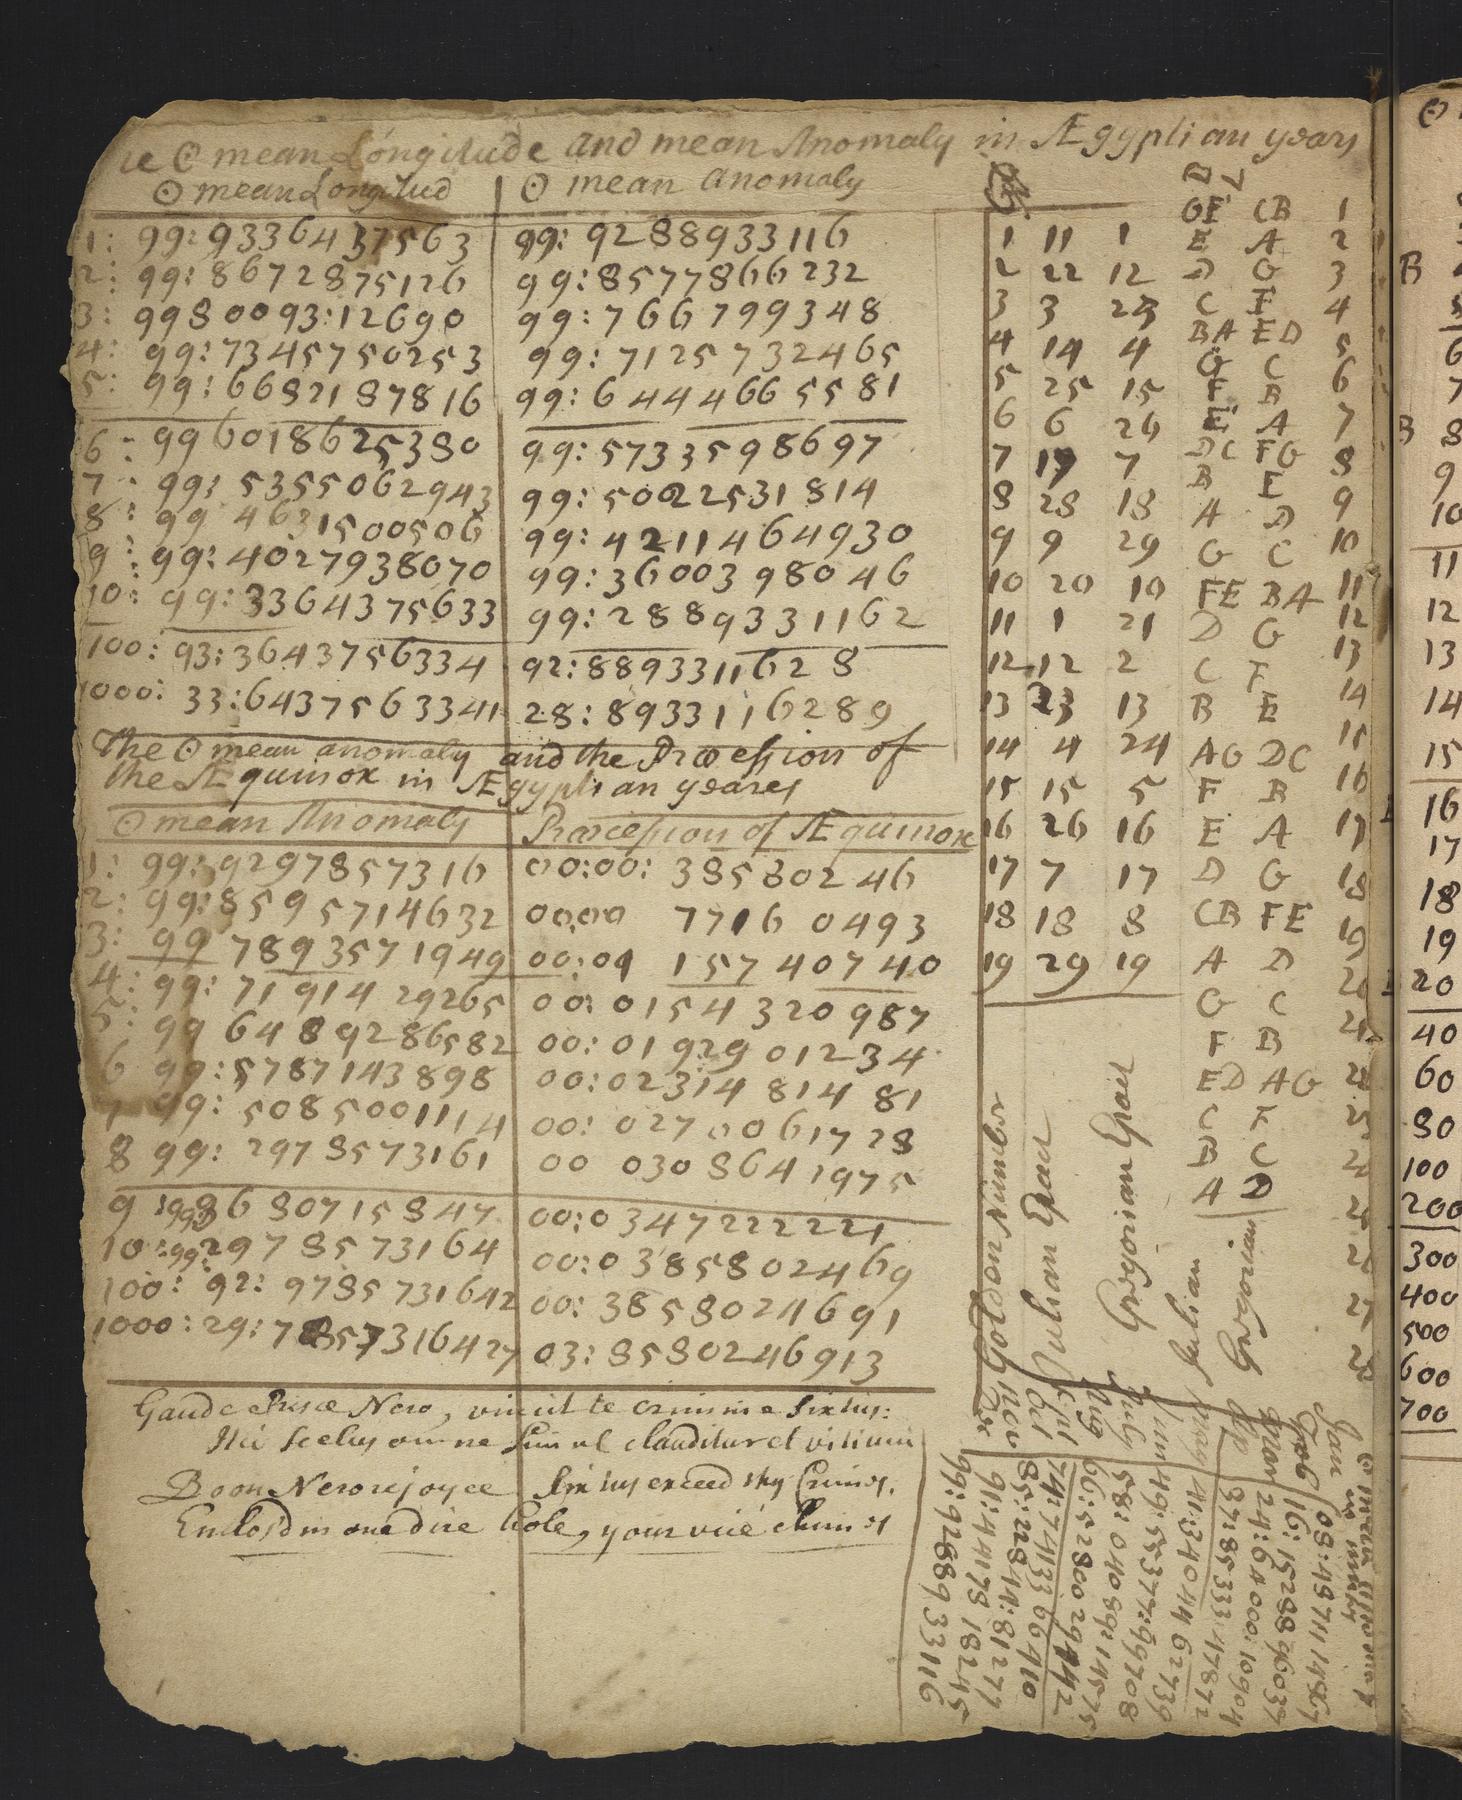 ye ☉ mean Longitude and mean Anomaly in Ægyptian years
☉ mean Longitud ☉ mean anomaly
1: 99: 9336437563 99: 9288933116
2: 99: 8672875126 99: 8577866232
3: 9980093:12690 99: 7667993 48
4: 99: 7345750253 99: 7125732465
5: 99: 6682187816 99: 6444665581
6: 99 6018625380 99: 5733598697
7: 99: 5355062943 99: 5022531814
8: 99 4631500506 99: 4211464930
9: 99: 4027938070 99: 3600398046
10: 99: 3364375633 99: 2889331162
100: 93: 3643756334 92: 8893311628
1000: 33: 6437563341 28: 8933116289
The ☉ mean anomaly and the Præcession of
the Æquinox in Ægyptian yeares
☉ mean Anomaly Præcession of Æquinox
1: 99: 9297857316 00:00: 38580246
2: 99: 8595714632 00:00 77160493
3: 99 7893571949 00:01 15740740
4: 99: 7191429265 00: 0154320987
5: 99 6489286582 00: 0192901234
6 99: 5787143898 00: 0231481481
7 99: 5085001114 00: 0270061728
8 99: 2978573161 00 0308641975
9 : 998 680715847 00: 0347222221
10: 99: 2978573164 00: 0385802469
100: 92: 9785731642 00: 3858024691
1000: 29: 7857316427 03: 8580246913
Gaude Prisce Nero, vincit te crimine Sixtus:
Hic scelus omne simul clauditur et vitium
Boon Nero rejoyce Sixtus exceed thy Crimes,
Enclosd in one dire hole, your vice
OF CB 1
1 11 1 E A 2
2 22 12 D G 3
3 3 23 C F 4
4 14 4 BA ED 5
5 25 15 G C 6
6 6 26 F B 7
7 17 7 E A
8 28 18 DC FG 8
9 9 29 B E 9
10 20 10 A D 10
11 1 21 G C 11
12 12 2 FE BA 12
13 23 13 D G 13
14 4 24 C F 14
15 15 5 B E 15
16 26 16 AG DC 16
17 7 17 F B 17
18 18 8 E A 18
19 29 19 D G 19
CB FE 20
A D 21
G C
F B
ED AG
C F
B C
A D
Golden Number
Julian Epact
Gregorian Epact
Julian
Gregorian
☉ mean Anomaly
in
Jan 08: 4871114867
Feb 16: 1528896037
Mar 24: 6400010904
Ap 37: 8533347872
May 41: 3404462739
Jun 49: 5537799708
July 58: 0408914575
Aug 66: 5280029442
Sept 74: 7413366410
Oct 85: 2284481277
Nov 91: 4417818245
Dec 99: 9288933116
B
B 8
6
7
9
10
11
12
13
14
15
16
17
18
19
20
40
60
80
100
200
300
400
500
600
700